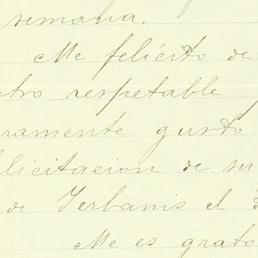 semana.
Me felicito de
tro respetable
ramente gusto
licitacion de su
de Terbanis el
Me es grato